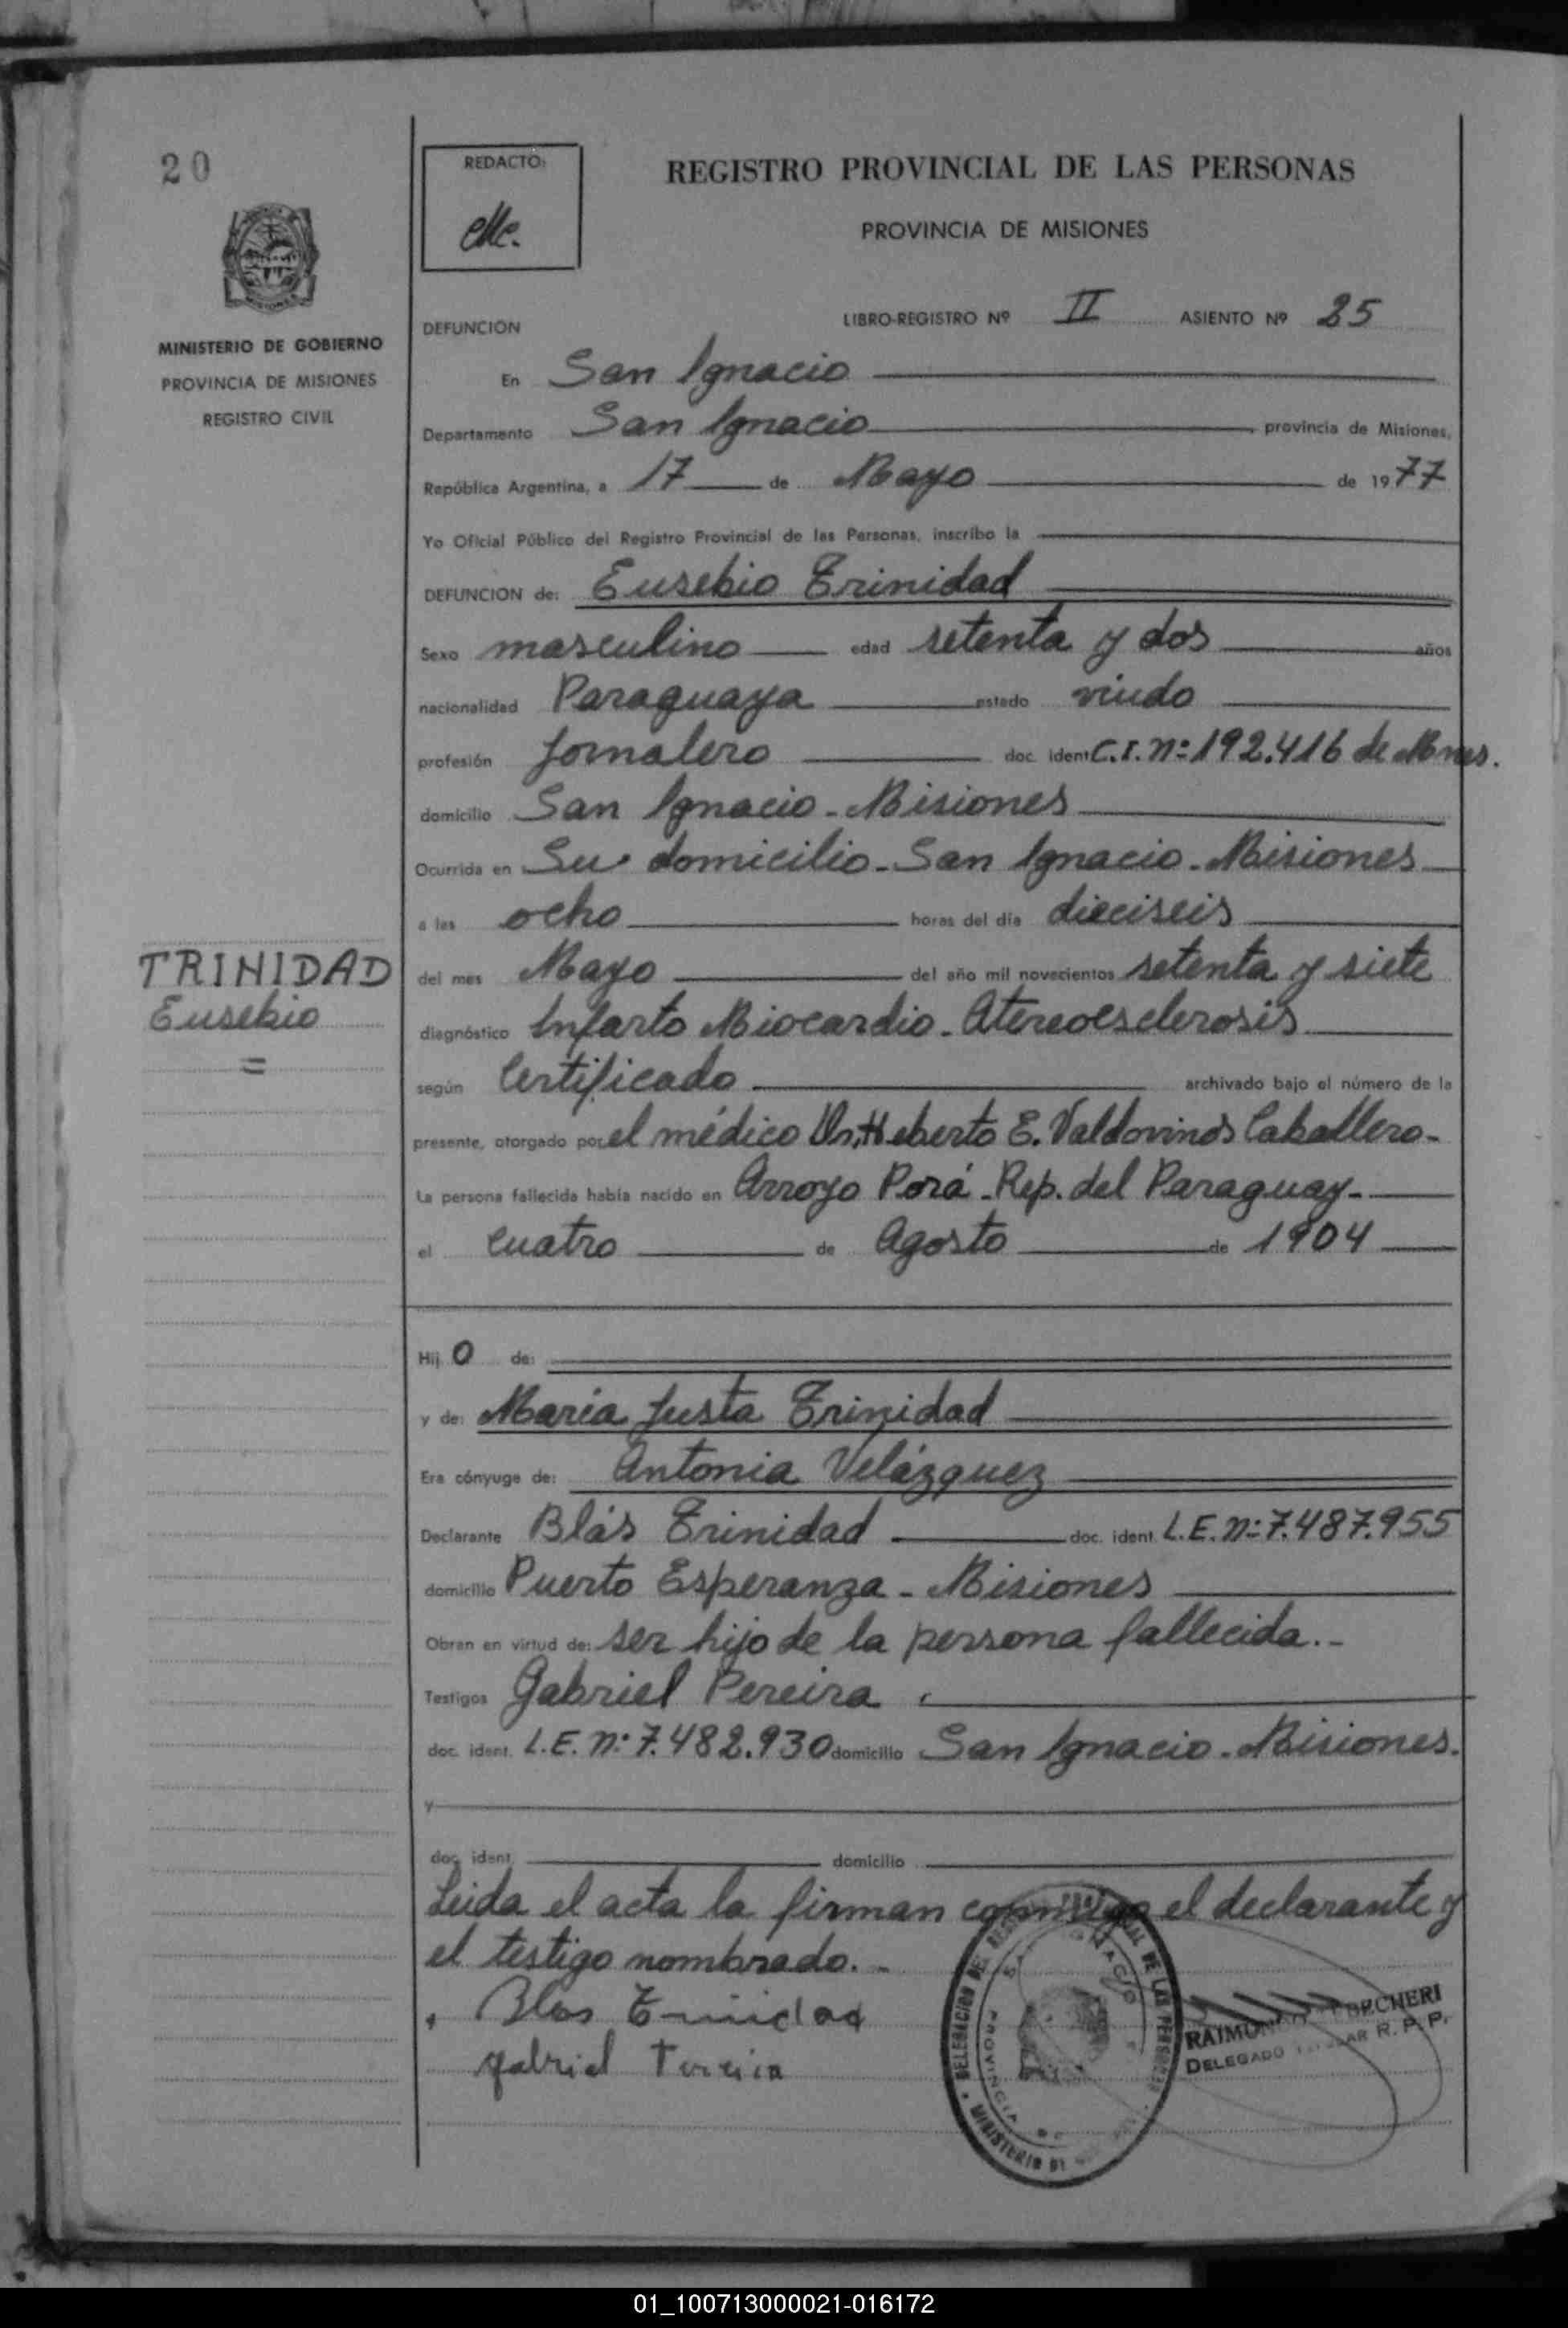 20
REDACTO:
REGISTRO PROVINCIAL DE LAS PERSONAS
PROVINCIA DE MISIONES
MISIONES
MINISTERIO DE GOBIERNO
PROVINCIA DE MISIONES
REGISTRO CIVIL
DEFUNCION LIBRO-REGISTRO Nº II ASIENTO Nº 25
En San Ignacio
Departamento San Ignacio provincia de Misiones,
República Argentina, a 17 de Mayo de 1977
Yo Oficial Público del Registro Provincial de las Personas, inscribo la
DEFUNCION de: Eusebio Trinidad
Sexo masculino edad setenta y dos años
nacionalidad Paraguaya estado viudo
profesión Jornalero doc. ident C.I. Nº 192.416 de Mnes.
domicilio San Ignacio - Misiones
Ocurrida en Su domicilio - San Ignacio - Misiones
a las ocho horas del día dieciseis
TRINIDAD
Eusebio
=
del mes Mayo del año mil novecientos setenta y siete
diagnóstico Infarto Miocardio - Atereoesclerosis
según Certificado archivado bajo el número de la
presente, otorgado por el médico Dr. Heberto E. Valdovinos Caballero -
La persona fallecida había nacido en Arroyo Porá - Rep. del Paraguay -
el cuatro de Agosto de 1904
Hij o de:
y de: María Justa Trinidad
Era cónyuge de: Antonia Velázquez
Declarante Blás Trinidad doc. ident. L.E. Nº 7.487.955
domicilio Puerto Esperanza - Misiones
Obran en virtud de: ser hijo de la persona fallecida. -
Testigos Gabriel Pereira
doc. ident. L.E. Nº 7.482.930 domicilio San Ignacio - Misiones.
y
doc. ident. domicilio
Leida el acta la firman conmigo el declarante y
el testigo nombrado. -
Blas Trinidad
Gabriel Pereira
DELEGACION DEL REGISTRO PROVINCIAL DE LAS PERSONAS
MINISTERIO DE
PROVINCIA DE
DELEGADO TITULAR R. P. P.
01_100713000021-016172